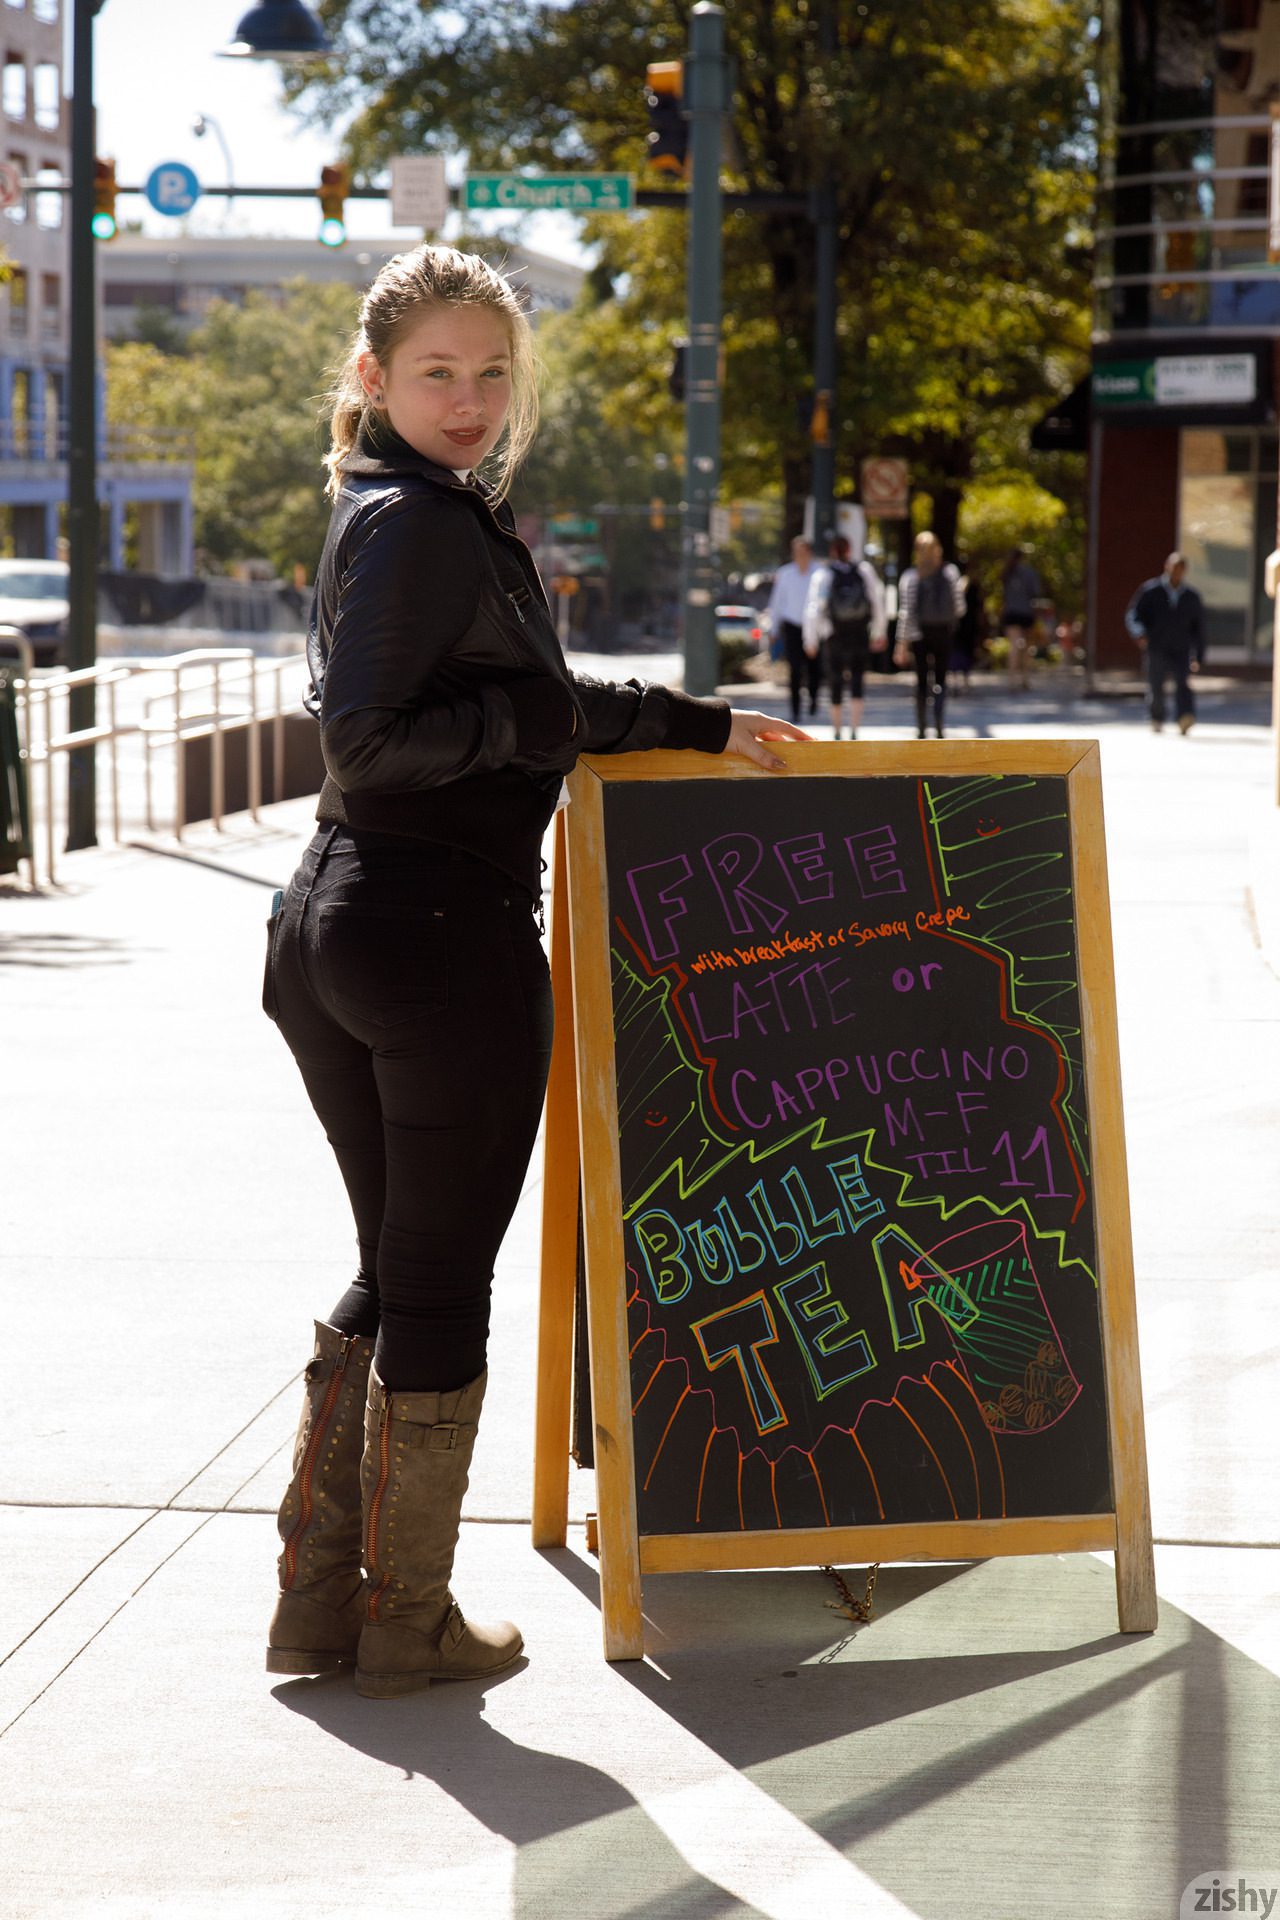 P
Church
FREE
with breakfast or Savory Crepe
LATTE or
CAPPUCCINO
M-F
TIL 11
BUbbLE
TEA
zishy